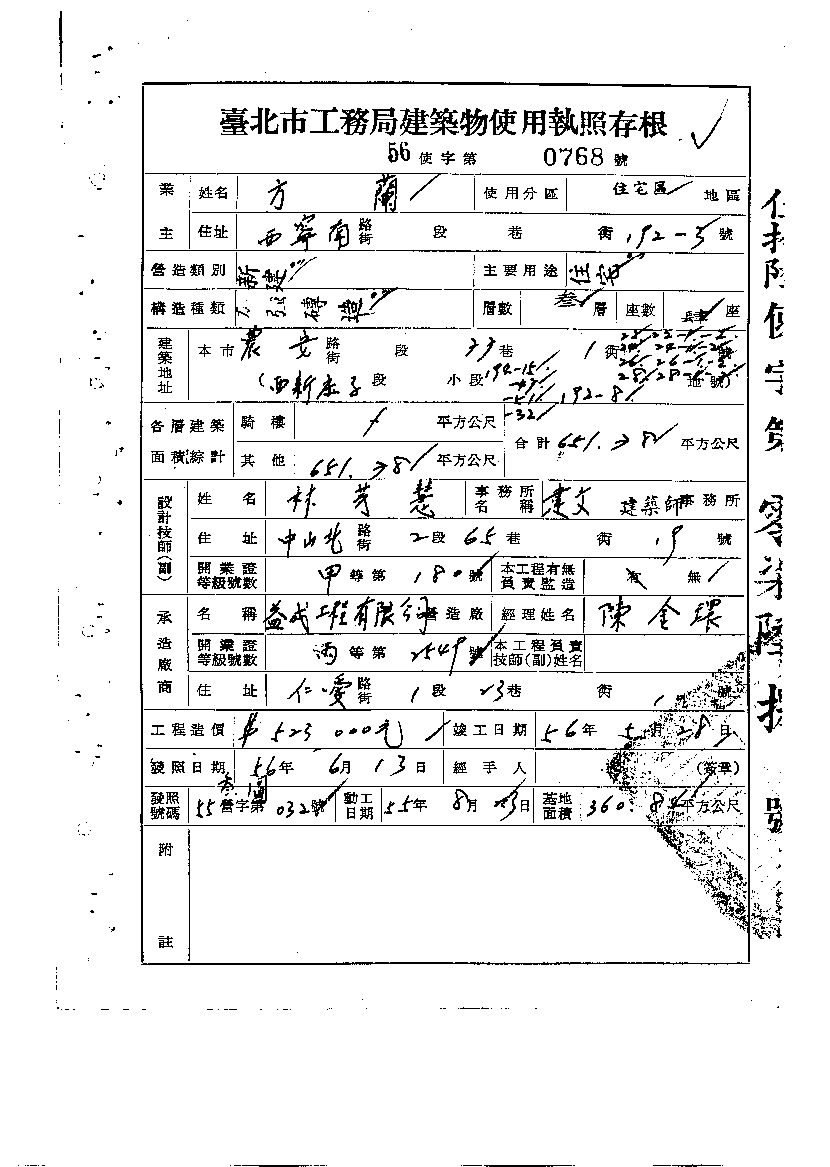 臺北市工務局建築物使用執照存根
56 使字第 0768 號
業主 姓名 方蘭 使用分區 住宅區 地區
住址 西寧南 路街 段 巷 街 192-5 號
營造類別 新建 主要用途 住宅
構造種類 磚造 層數 叁 層 座數 肆 座
建築地址 本市 農安 路街 段 33 巷 1 街
(西新庄子段 小段 194-15 192-8 地號)
-32
各層建築面積綜計 騎樓 平方公尺 合計 651.78 平方公尺
其他 651.78 平方公尺
設計技師(副) 姓名 林芳慧 事務所名稱 建文 建築師事務所
住址 中山北 路街 2 段 65 巷 街 19 號
開業證等級號數 甲 等第 180 號 本工程有無負責監造 有 無
承造廠商 名稱 益成工程有限公司 營造廠 經理姓名 陳金環
開業證等級號數 丙 等第 2549 號 本工程負責技師(副)姓名
住址 仁愛 路街 1 段 23 巷 街 1 號
工程造價 $523000元 竣工日期 56年 5月 28日
發照日期 56年 6月 13日 經手人 (簽章)
發照號碼 55 營字第 032 號 動工日期 55年 8月 23日 基地面積 360.84 平方公尺
附註
使字第零柒陸捌號